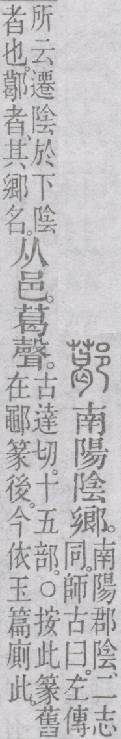 𨞛南陽陰鄉。
南陽郡陰、二志
同。師古曰。左傳
所云遷陰於下陰
者也。𨞛者、其鄉名。
从邑。葛聲。
古達切。十五部。○按此篆舊
在鄳篆後。今依玉篇廁此。